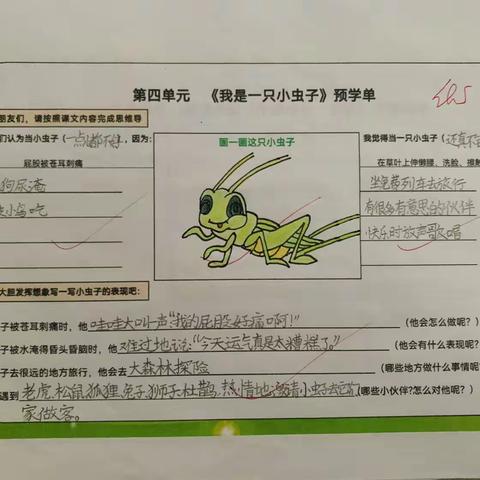 第四单元 《我是一只小虫子》预学单
朋友们，请按照课文内容完成思维导
们认为当小虫子（一点都不好，因为：
屁股被苍耳刺痛
狗尿淹
小鸟吃
画一画这只小虫子
我觉得当一只小虫子（还真不
在草叶上伸懒腰、洗脸、擦触
坐免费列车去旅行
有很多有意思的小伙伴
快乐时放声歌唱
大胆发挥想象写一写小虫子的表现吧：
子被苍耳刺痛时，他哇哇大叫一声“我的屁股好痛啊！”（他会怎么做呢？）
子被水淹得昏头昏脑时，他难过地说：“今天运气真是太糟糕了。”（他会有什么表现呢？
子去很远的地方旅行，他会去大森林探险（哪些地方做什么事情呢？
遇到老虎、松鼠、狐狸、兔子、狮子、杜鹃，热情地邀请小虫子去（哪些小伙伴？怎么对他呢？）
家做客。